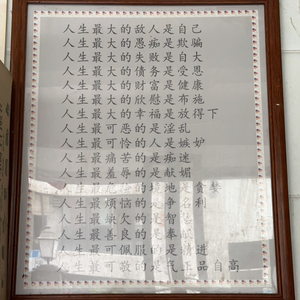 人生最大的敌人是自己
人生最大的愚痴是欺骗
人生最大的失败是自大
人生最大的债务是受恩
人生最大的财富是健康
人生最大的欣慰是布施
人生最大的幸福是放得下
人生最可恶的是淫乱
人生最可怜的人是嫉妒
人生最痛苦的是痴迷
人生最羞辱的是献媚
人生最危险的境地是贪婪
人生最烦恼的是争名利
人生最缺欠的是智
人生最善良的是奉
人生最可佩服的是 进
人生 可 的是 品自高